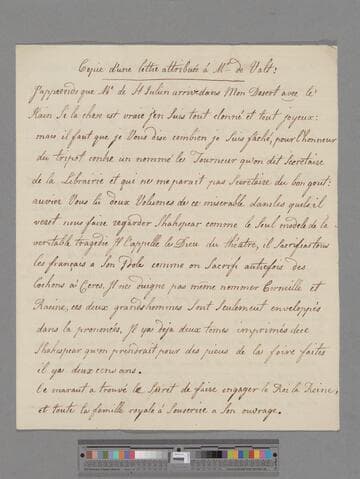 Copie d'une lettre attribuée à Mr. de Valt:
J'apprends que Mr. de St Julien arrive dans Mon Desert avec le
Kain Si la chose est vraie j'en Suis tout etonné et tout joyeux:
mais il faut que je Vous dise combien je Suis faché, pour l'honneur
du tripot contre un nommé le Tourneur qu'on dit Secretaire
de la Librairie et qui ne me parait pas Secrétaire du bon gout:
auriez Vous lu deux Volumes de ce miserable, dans les quels il
veut nous faire regarder Shakspear comme le Seul modele de la
veritable tragedie. Il l'appelle le Dieu du théatre, il Sacrifie tous
les français a Son Idole comme on Sacrifi autrefois des
Cochons à Ceres. Il ne daigne pas même nommer Corneille et
Racine, ces deux grands hommes Sont Seulement enveloppés
dans la Il y a deja deux tomes imprimés de ce
Shakspear qu'on prendrait pour des pieces de la foire faites
il y a deux cens ans.
Ce maraut a trouvé le Secret de faire engager le Roi la Reine,
et toute la famille royale à Souscrire a Son ouvrage.